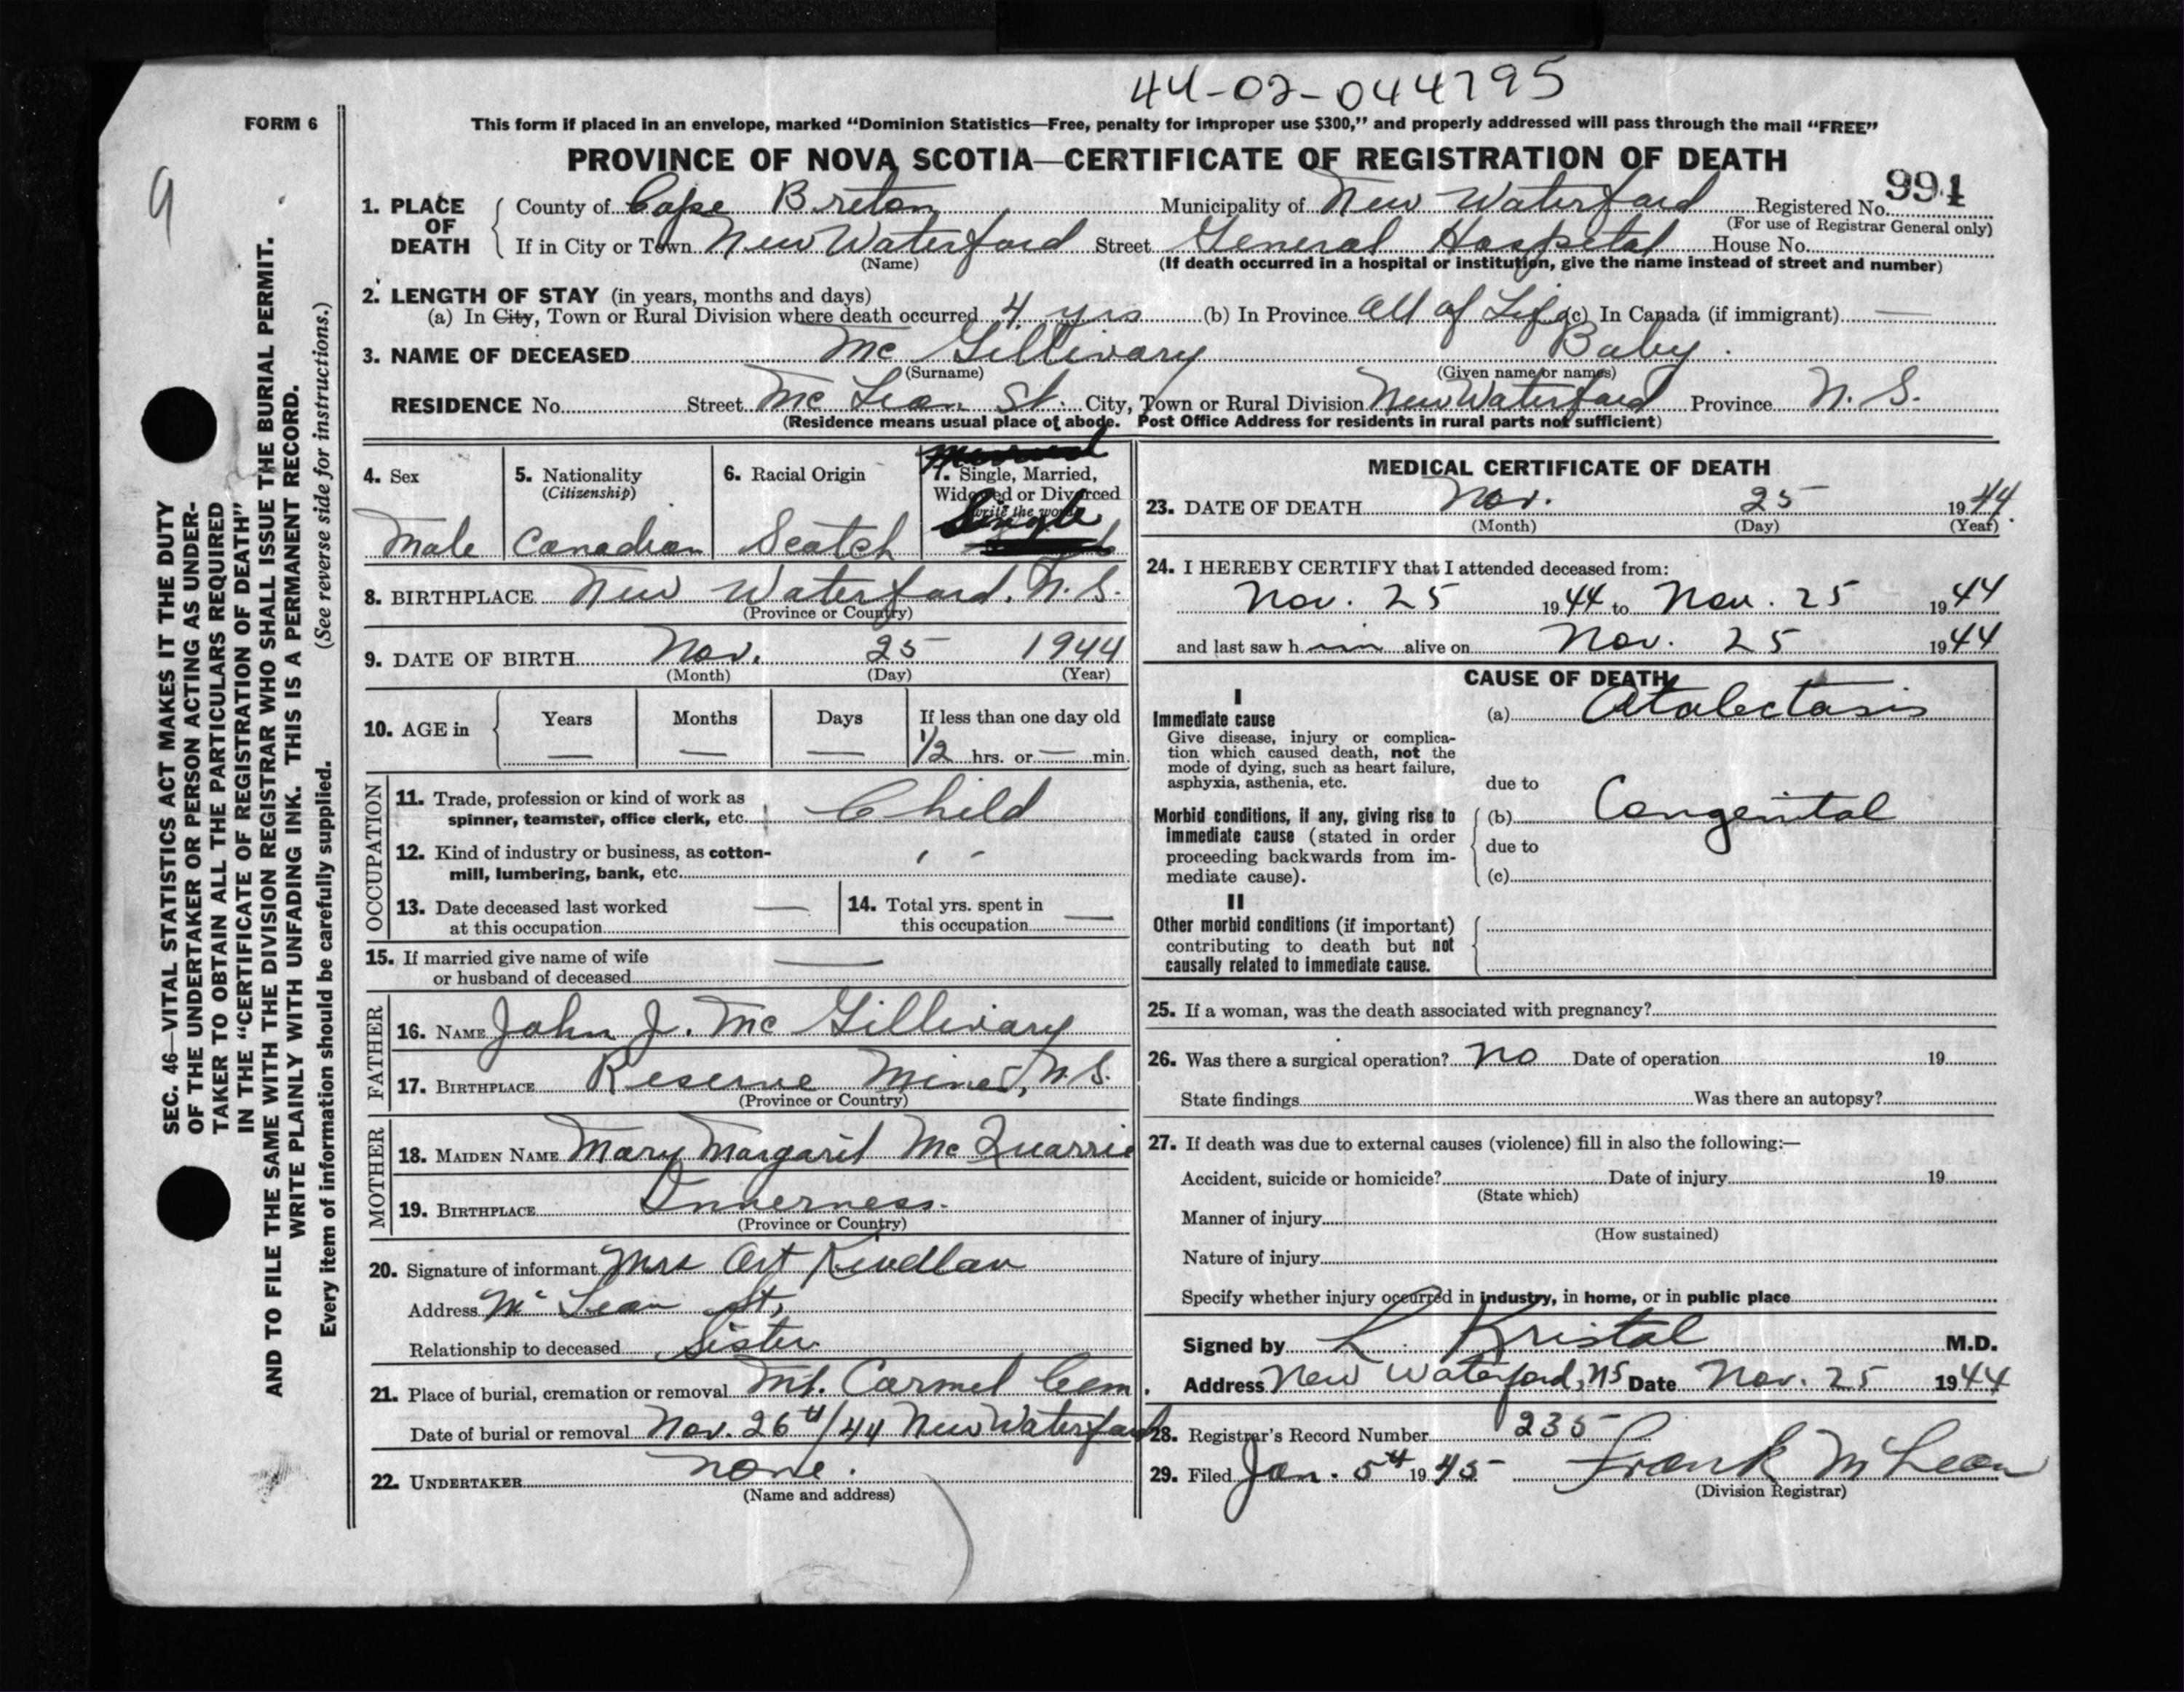 44-02-044795
FORM 6
This form if placed in an envelope, marked “Dominion Statistics—Free, penalty for improper use $300,” and properly addressed will pass through the mail “FREE”
PROVINCE OF NOVA SCOTIA—CERTIFICATE OF REGISTRATION OF DEATH
9
994
1. PLACE OF DEATH
County of Cape Breton Municipality of New Waterford Registered No.
(For use of Registrar General only)
If in City or Town New Waterford Street General Hospital House No.
(Name) (If death occurred in a hospital or institution, give the name instead of street and number)
2. LENGTH OF STAY (in years, months and days)
(a) In City, Town or Rural Division where death occurred 4 yrs (b) In Province all of Life (c) In Canada (if immigrant) —
3. NAME OF DECEASED Mc Gillivary Baby.
(Surname) (Given name or names)
RESIDENCE No. Street Mc Lean St. City, Town or Rural Division New Waterford Province N. S.
(Residence means usual place of abode. Post Office Address for residents in rural parts not sufficient)
SEC. 46—VITAL STATISTICS ACT MAKES IT THE DUTY
OF THE UNDERTAKER OR PERSON ACTING AS UNDER-
TAKER TO OBTAIN ALL THE PARTICULARS REQUIRED
IN THE “CERTIFICATE OF REGISTRATION OF DEATH”
AND TO FILE THE SAME WITH THE DIVISION REGISTRAR WHO SHALL ISSUE THE BURIAL PERMIT.
WRITE PLAINLY WITH UNFADING INK. THIS IS A PERMANENT RECORD.
Every item of information should be carefully supplied. (See reverse side for instructions.)
4. Sex
Male
5. Nationality
(Citizenship)
Canadian
6. Racial Origin
Scotch
7. Single, Married,
Widowed or Divorced
write the word
Single
8. BIRTHPLACE New Waterford. N. S.
(Province or Country)
9. DATE OF BIRTH Nov. 25 1944
(Month) (Day) (Year)
10. AGE in
Years Months Days If less than one day old
— — — 1/2 hrs. or — min.
OCCUPATION
11. Trade, profession or kind of work as
spinner, teamster, office clerk, etc. Child
12. Kind of industry or business, as cotton-
mill, lumbering, bank, etc.
13. Date deceased last worked
at this occupation —
14. Total yrs. spent in
this occupation —
15. If married give name of wife
or husband of deceased —
FATHER
16. NAME John J. Mc Gillivary
17. BIRTHPLACE Reserve Mines, N. S.
(Province or Country)
MOTHER
18. MAIDEN NAME Mary Margaret Mc Quarrie
19. BIRTHPLACE Inverness.
(Province or Country)
20. Signature of informant Mrs Art
Address Mc Lean St,
Relationship to deceased Sister
21. Place of burial, cremation or removal Mt. Carmel Cem.
Date of burial or removal Nov. 26th/44 New Waterford
22. UNDERTAKER none.
(Name and address)
MEDICAL CERTIFICATE OF DEATH
23. DATE OF DEATH Nov. 25 1944
(Month) (Day) (Year)
24. I HEREBY CERTIFY that I attended deceased from:
Nov. 25 1944 to Nov. 25 1944
and last saw him alive on Nov. 25 1944
CAUSE OF DEATH
I
Immediate cause
Give disease, injury or complica-
tion which caused death, not the
mode of dying, such as heart failure,
asphyxia, asthenia, etc.
(a) Atalectasis
due to
Morbid conditions, if any, giving rise to
immediate cause (stated in order
proceeding backwards from im-
mediate cause).
(b) Congenital
due to
(c)
II
Other morbid conditions (if important)
contributing to death but not
causally related to immediate cause.
25. If a woman, was the death associated with pregnancy?
26. Was there a surgical operation? no Date of operation 19
State findings Was there an autopsy?
27. If death was due to external causes (violence) fill in also the following:—
Accident, suicide or homicide? Date of injury 19
(State which)
Manner of injury
(How sustained)
Nature of injury
Specify whether injury occurred in industry, in home, or in public place
Signed by L. Kristal M.D.
Address New Waterford, NS Date Nov. 25 1944
28. Registrar's Record Number 235
29. Filed Jan. 5th 1945 Frank McLean
(Division Registrar)